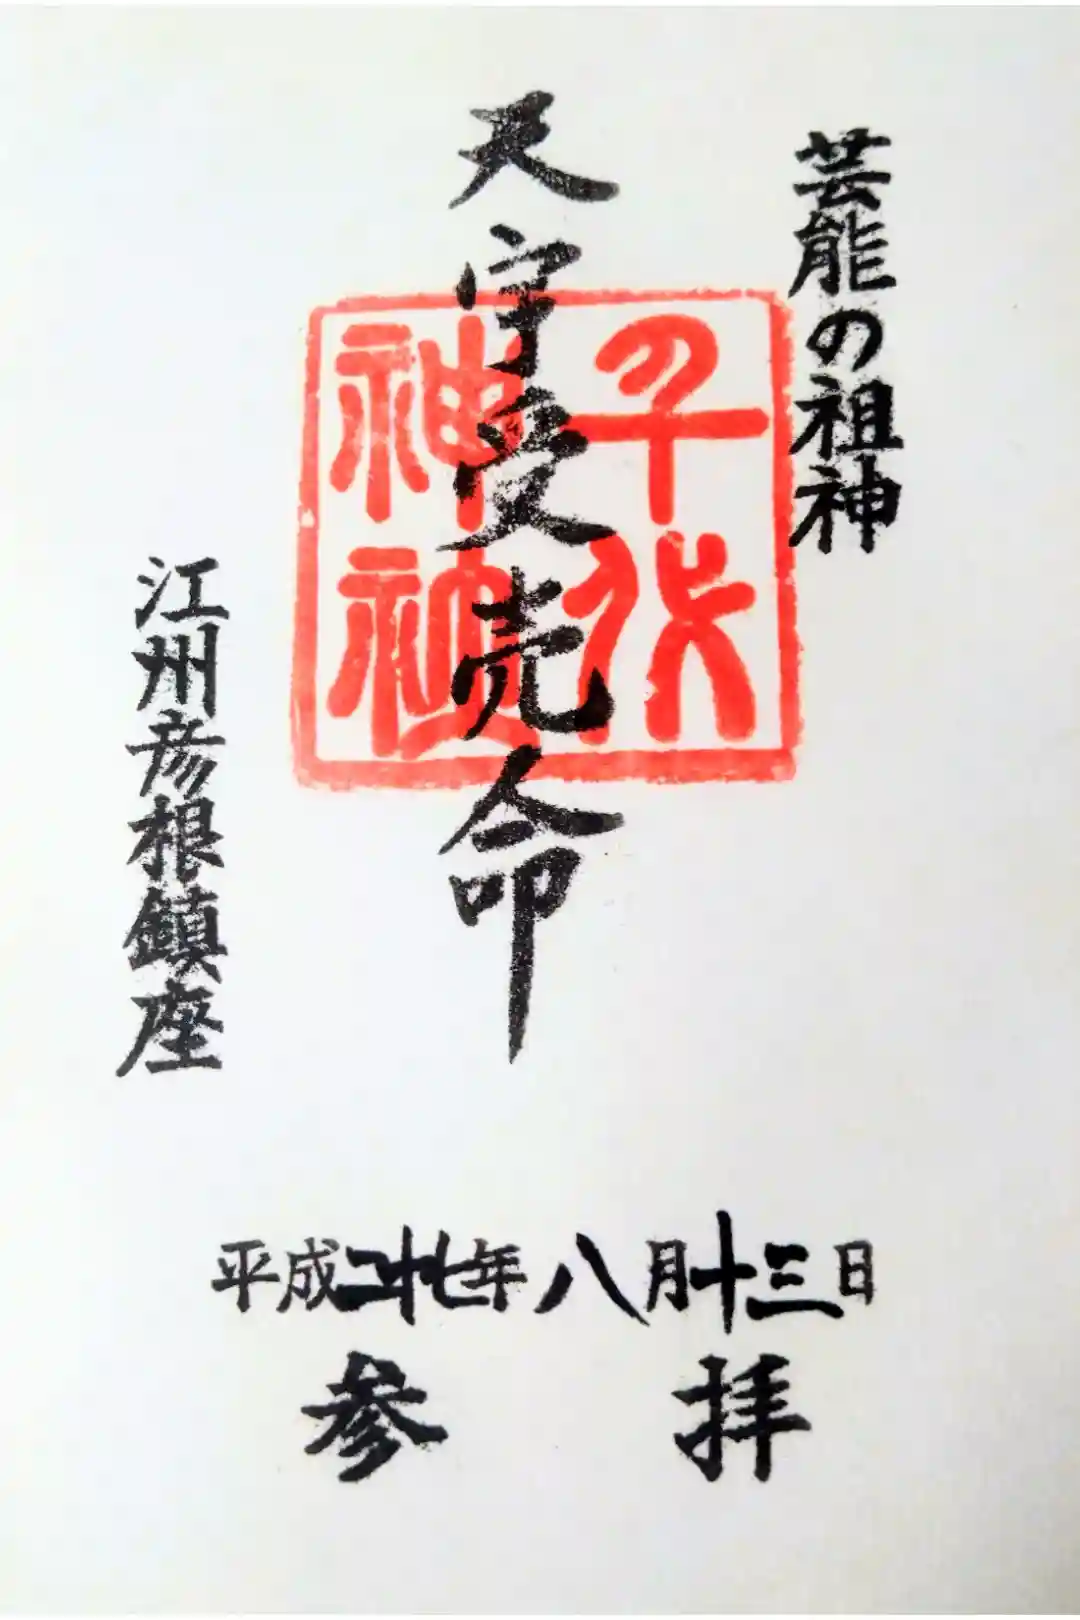 芸能の祖神
天宇受売命
千代
神社
江州彦根鎮座
平成二十七年八月十三日
参拝